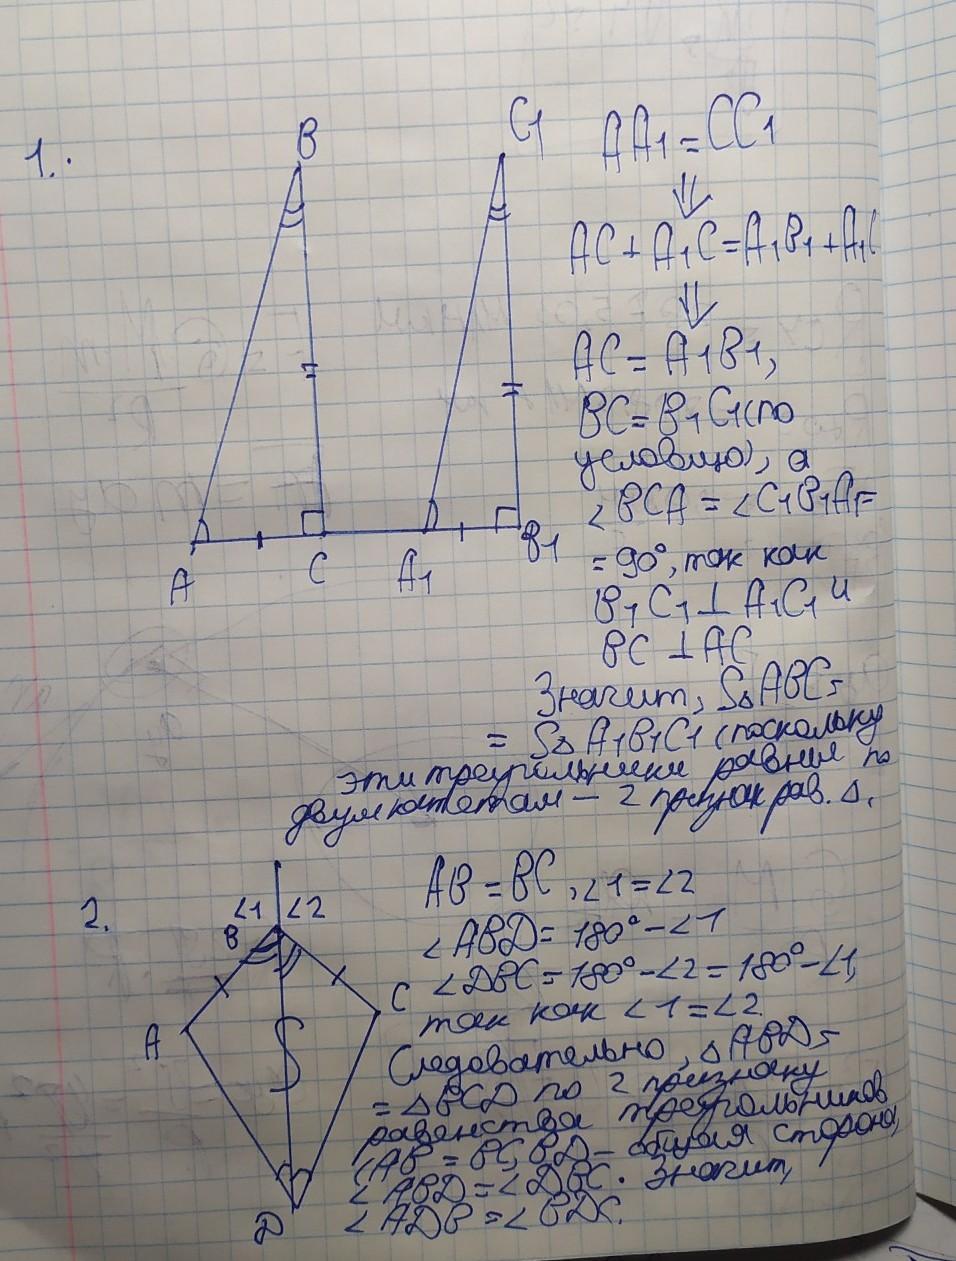 1.
B
C1
A
C
A1
B1
AA1 = CC1
⇓
AC + A1C = A1B1 + A1C
⇓
AC = A1B1,
BC = B1C1 (по
условию), а
∠BCA = ∠C1B1A1 =
= 90°, так как
B1C1 ⊥ A1C1 и
BC ⊥ AC
Значит, S△ABC =
= S△A1B1C1 (поскольку
эти треугольники равны по
двум катетам – 2 признак рав. △.
2.
∠1 ∠2
B
C
A
D
AB = BC, ∠1 = ∠2
∠ABD = 180° – ∠1
∠DBC = 180° – ∠2 = 180° – ∠1,
так как ∠1 = ∠2.
Следовательно, △ABD =
= △BCD по 2 признаку
равенства треугольников
(AB = BC, BD – общая сторона,
∠ABD = ∠DBC. Значит,
∠ADB = ∠BDC.